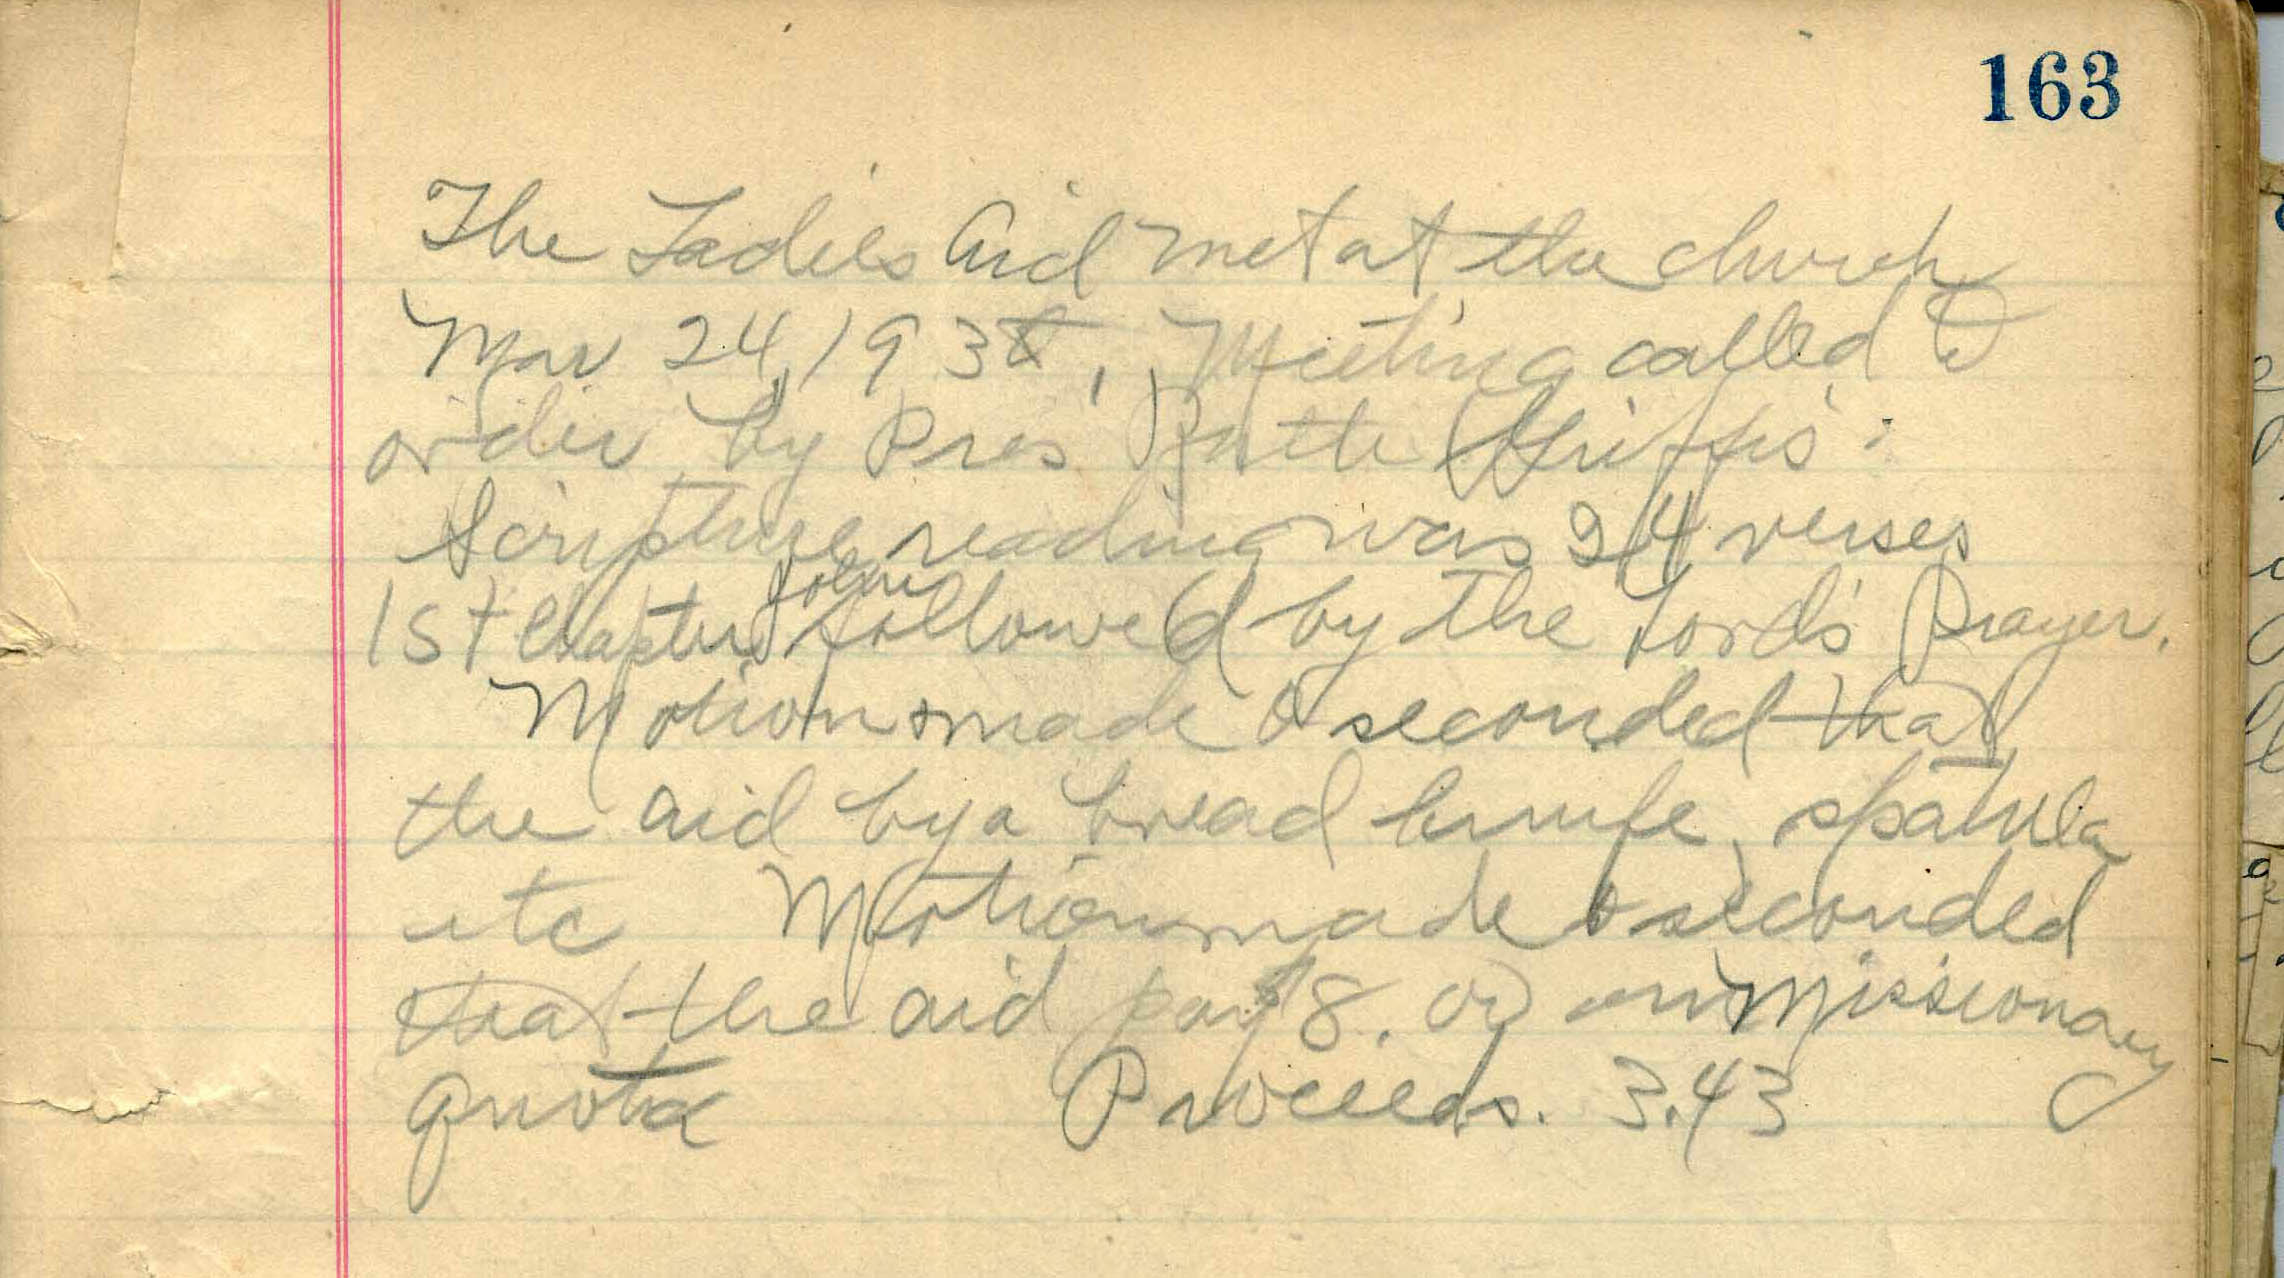 163
The Ladies Aid met at the church
Mar 24, 193 Meeting called to
order by Pres Griffis.
Scripture reading was 24 verses
John
1st chapter followed by the Lord's Prayer.
Motion made & seconded that
the aid by a bread knife, spatula
etc Motion made & seconded
that the aid pay $8. on missionary
quota Proceeds. 3.43